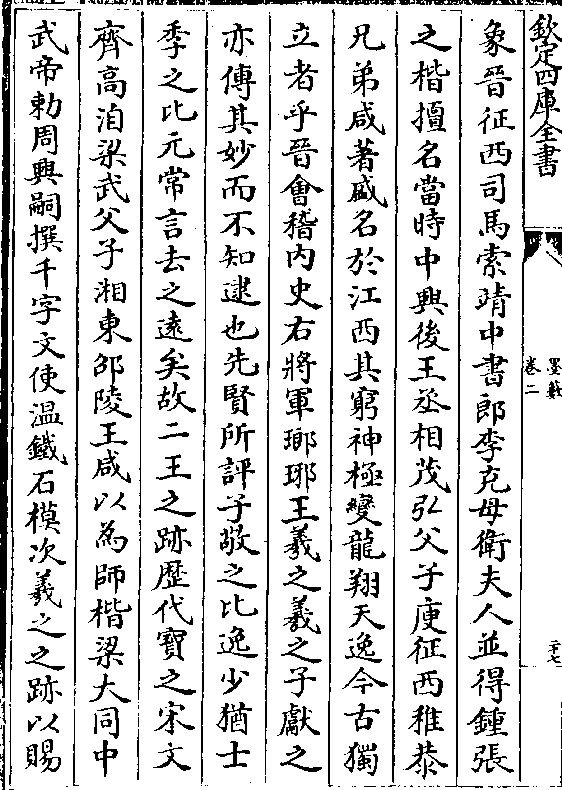 欽定四庫全書
墨藪
卷二
二十七
象晉征西司馬索靖中書郎李充母衛夫人並得鍾張
之楷擅名當時中興後王丞相茂弘父子庾征西稚恭
兄弟咸著盛名於江西其窮神極變龍翔天逸今古獨
立者乎晉會稽内史右將軍瑯琊王羲之羲之子獻之
亦傳其妙而不知逮也先賢所評子敬之比逸少猶士
季之比元常言去之逺矣故二王之跡歴代寶之宋文
齊高洎梁武父子湘東邵陵王咸以為師楷梁大同中
武帝勅周興嗣撰千字文使温鐵石模次羲之之跡以賜